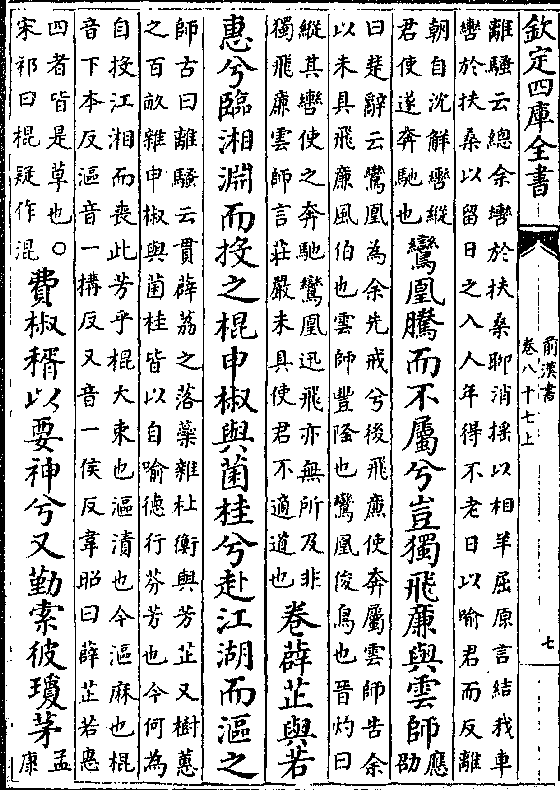 欽定四庫全書
前漢書
卷八十七上
七
離騷云總余轡於扶桑聊消揺以相羊屈原言結我車
轡於扶桑以留日之入人年得不老日以喻君而反離
朝自沈解轡縱
君使遂奔馳也
鸞鳳騰而不屬兮豈獨飛廉與雲師
應
劭
曰楚辭云鸞凰為余先戒兮後飛廉使奔屬雲師告余
以未具飛廉風伯也雲師豐隆也鸞凰俊鳥也晉灼曰
縱其轡使之奔馳鸞凰迅飛亦無所及非
獨飛廉雲師言莊嚴未具使君不適道也
卷薜芷與若
蕙兮臨湘淵而投之棍申椒與菌桂兮赴江湖而漚之
師古曰離騷云貫薜荔之落蘂雜杜衡與芳芷又樹蕙
之百畝雜申椒與菌桂皆以自喻德行芬芳也今何為
自投江湘而喪此芳乎棍大束也漚漬也今漚麻也棍
音下本反漚音一搆反又音一侯反韋昭曰薜芷若惠
四者皆是草也○
宋祁曰棍疑作混
費椒稰以要神兮又勤索彼瓊茅
孟
康